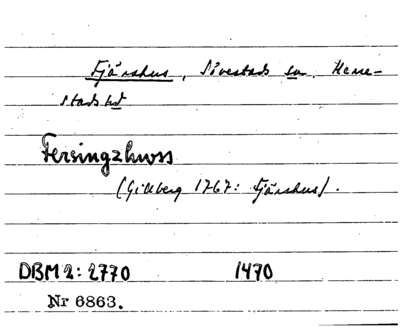 Fjärshus, Sövestads sn. Herre-
stads hd
Fersingzhwss
(Gillberg 1767: Fjärshus).
DBM 2: 2770 1470
Nr 6863.